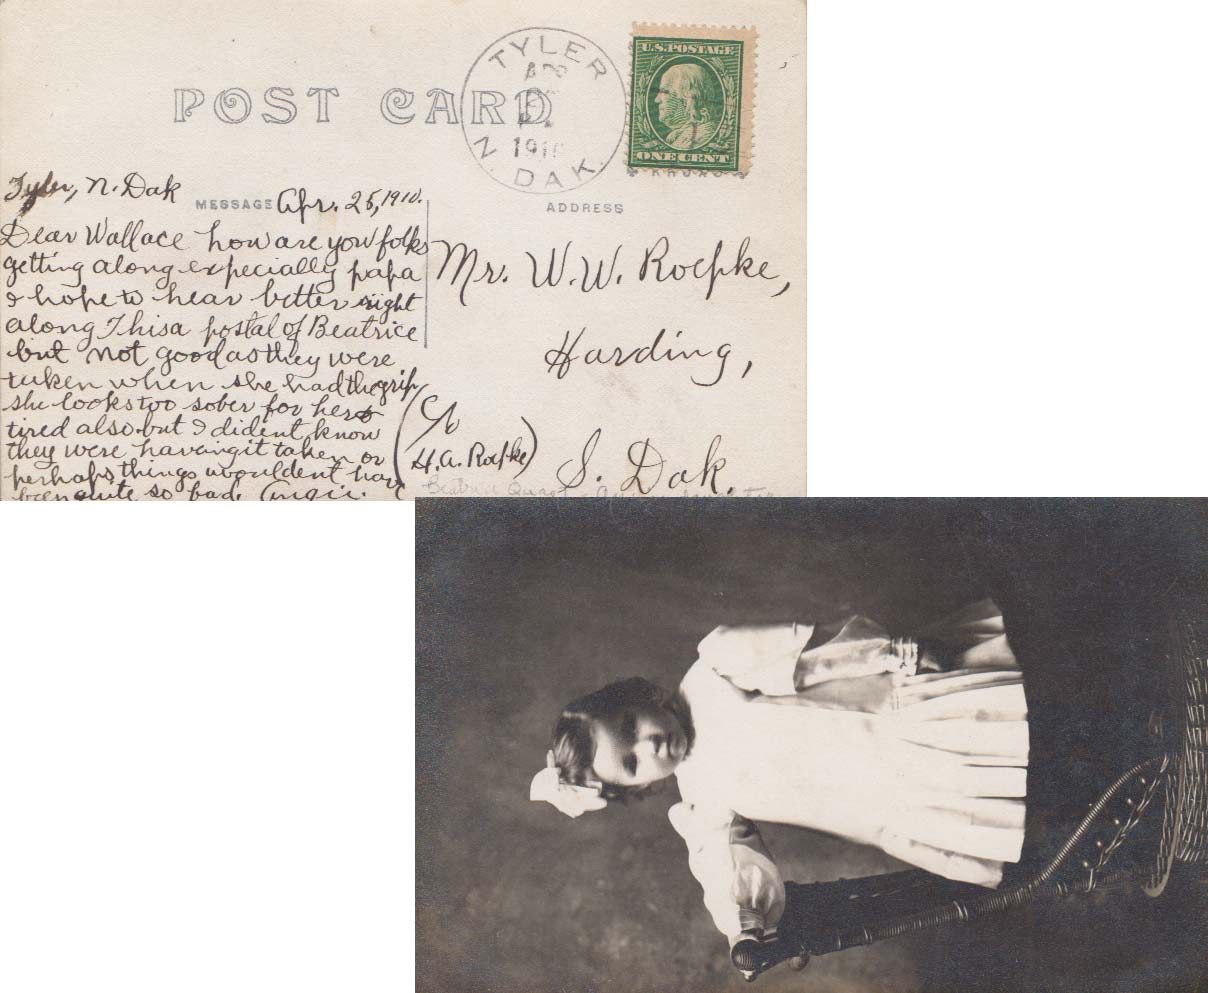 TYLER
APR
1910
N. DAK.
U.S. POSTAGE
ONE CENT
POST CARD
Tyler, N. Dak
MESSAGE
Apr. 25, 1910.
ADDRESS
Dear Wallace how are you folks
getting along expecially papa
I hope to hear better right
along This a postal of Beatrice
but not good as they were
taken when she had the grip
she looks too sober for her &
tired also. but I dident know
they were having it taken or
perhaps things wouldent have
been quite so bad. Angie.
Mr. W. W. Roepke,
Harding,
(C/o
H. A. Roepke)
S. Dak.
Beatrice Quast